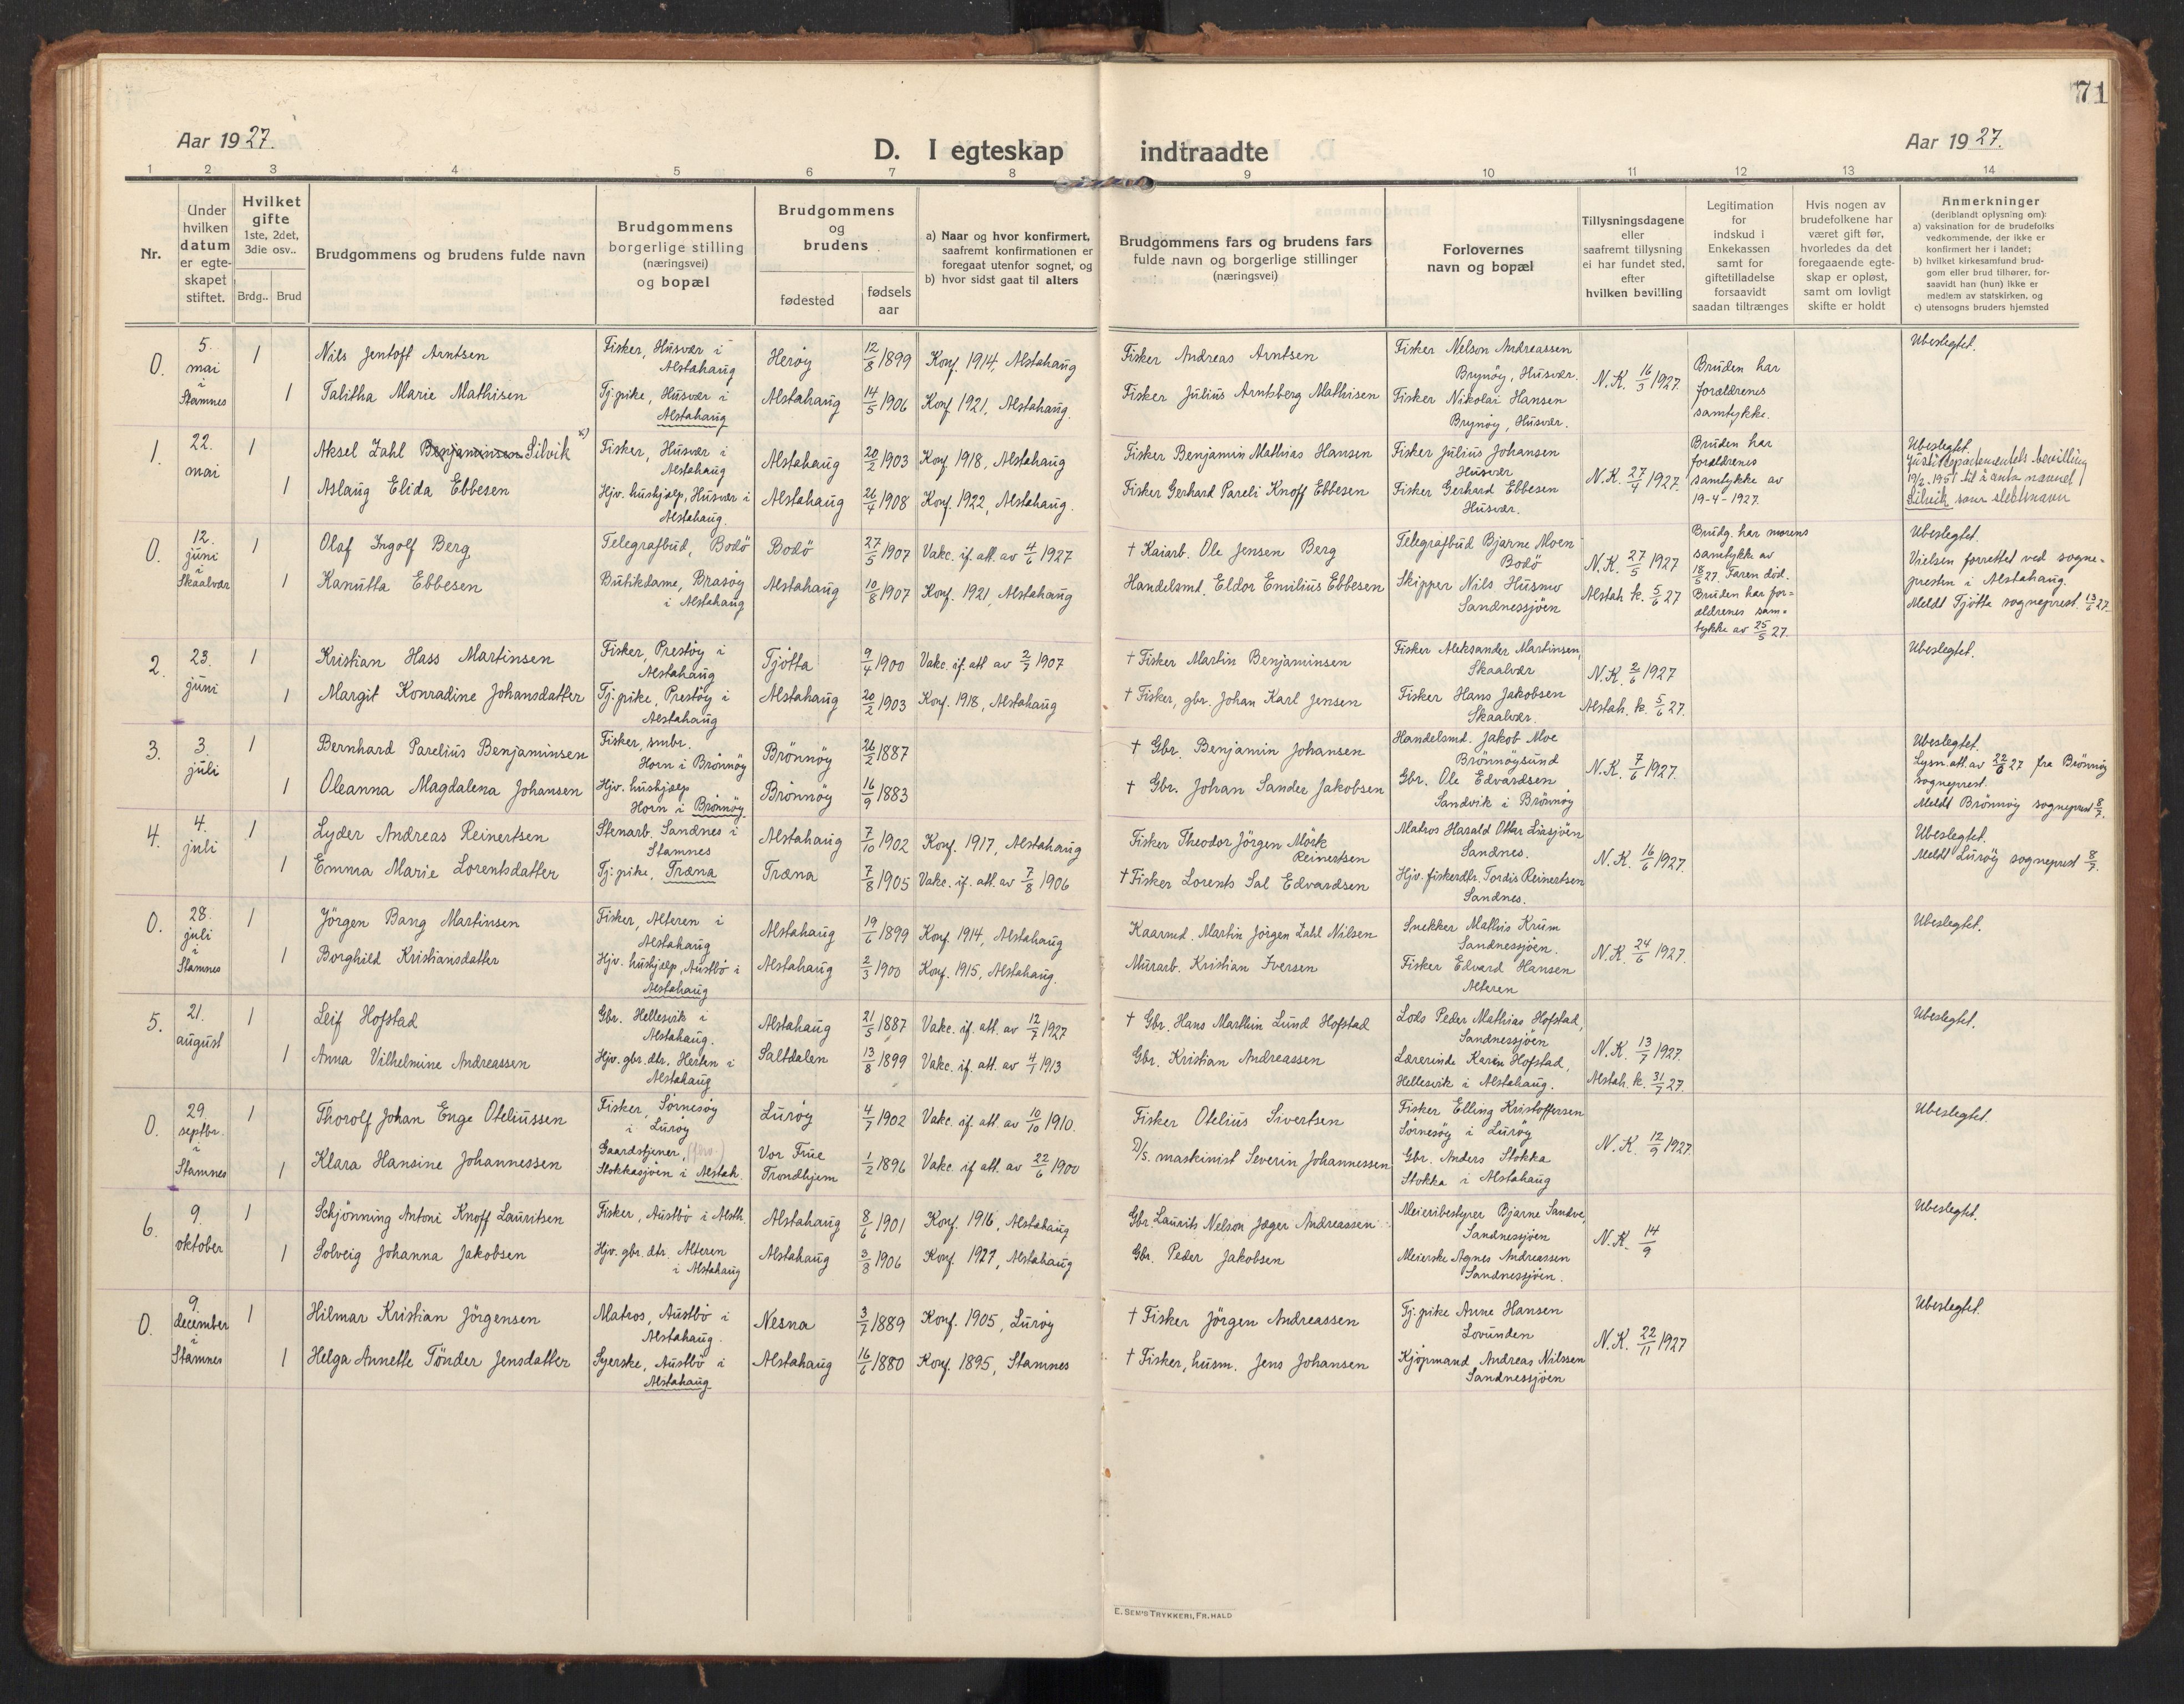 71
Aar 1927.
D. I egteskap indtraadte
Aar 1927.
1 2 3 4 5 6 7 8 9 10 11 12 13 14
Nr.
Under hvilken datum er egteskapet stiftet.
Hvilket gifte 1ste, 2det, 3die osv..
Brdg.. Brud
Brudgommens og brudens fulde navn
Brudgommens borgerlige stilling (næringsvei) og bopæl
Brudgommens og brudens
fødested
fødsels aar
a) Naar og hvor konfirmert, saafremt konfirmationen er foregaat utenfor sognet, og
b) hvor sidst gaat til alters
Brudgommens fars og brudens fars fulde navn og borgerlige stillinger (næringsvei)
Forlovernes navn og bopæl
Tillysningsdagene eller saafremt tillysning ei har fundet sted, efter hvilken bevilling
Legitimation for indskud i Enkekassen samt for giftetilladelse forsaavidt saadan tiltrænges
Hvis nogen av brudefolkene har været gift før, hvorledes da det foregaaende egteskap er opløst, samt om lovligt skifte er holdt
Anmerkninger (deriblandt oplysning om):
a) vaksination for de brudefolks vedkommende, der ikke er konfirmert her i landet;
b) hvilket kirkesamfund brudgom eller brud tilhører, forsaavidt han (hun) ikke er medlem av statskirken, og
c) utensogns bruders hjemsted
0. 5. mai i Stamnes 1 Nils Jentoft Arntsen Fisker, Husvær i Alstahaug Herøy 12/8 1899 Konf. 1914, Alstahaug Fisker Andreas Arntsen Fisker Nelson Andreassen Brynøy, Husvær. N.K. 16/3 1927. Bruden har forældrenes samtykke. Ubeslegtet.
1 Talitha Marie Mathisen Tj.pike, Husvær i Alstahaug Alstahaug 14/5 1906 Konf. 1921, Alstahaug. Fisker Julius Arntsberg Mathisen Fisker Nikolai Hansen Brynøy, Husvær.
1. 22. mai 1 Aksel Zahl Benjaminsen Silvik x) Fisker, Husvær i Alstahaug Alstahaug 20/2 1903 Konf. 1918, Alstahaug Fisker Benjamin Mathias Hansen Fisker Julius Johansen Husvær N.K. 27/4 1927. Bruden har forældrenes samtykke av 19-4-1927. Ubeslegtet. Justitsepartementets bevilling 19/2-1951 til å anta navnet Silvik som slektsnavn
1 Aslaug Elida Ebbesen Hjv. hushjælp, Husvær i Alstahaug. Alstahaug 26/4 1908 Konf. 1922, Alstahaug. Fisker Gerhard Pareli Knoff Ebbesen Fisker Gerhard Ebbesen Husvær.
0. 12. juni i Skaalvær 1 Olaf Ingolf Berg Telegrafbud, Bodö Bodö 27/5 1907 Vakc. if. att. av 4/6 1927 † Kaiarb. Ole Jensen Berg Telegrafbud Bjarne Moen Bodö N.K. 27/5 1927 Alstah k. 5/6 27 Brudg. har morens samtykk av 18/5 27. Faren död. Bruden har forældrenes samtykke av 25/5 27. Ubeslegtet. Vielsen forrettet ved sognepresten i Alstahaug. Meldt Tjøtta sogneprest 13/6 27.
1 Kanutta Ebbesen Butikdame, Brasøy i Alstahaug Alstahaug 10/8 1907 Konf. 1921, Alstahaug Handelsmd. Eldor Emilius Ebbesen Skipper Nils Husmo Sandnessjöen
2. 23. juni 1 Kristian Hass Martinsen Fisker, Prestøy i Alstahaug Tjøtta 9/4 1900 Vakc. if. att av 2/7 1907 † Fisker Martin Benjaminsen Fisker Aleksander Martinsen, Skaalvær N.K. 2/6 1927 Alstah. k. 5/6 27. Ubeslegtet.
1 Margit Konradine Johansdatter Tj.pike, Prestøy i Alstahaug Alstahaug 20/2 1903 Konf. 1918, Alstahaug † Fisker, gbr. Johan Karl Jensen Fisker Hans Jakobsen Skaalvær.
3. 3. juli 1 Bernhard Parelius Benjaminsen Fisker, smbr. Horn i Brönnöy Brönnöy 26/2 1887 † Gbr. Benjamin Johansen Handelsmd. Jakob Moe Brönnöysund N.K. 7/6 1927. Ubeslegtet. Lysn.att. av 22/6 27 fra Brönnöy sogneprest. Meldt Brönnöy sogneprest 8/7.
1 Oleanna Magdalena Johansen Hjv. hushjælp Horn i Brönnöy. Brönnöy 16/9 1883 † Gbr. Johan Sander Jakobsen Gbr. Ole Edvardsen Sandvik i Brönnöy
4. 4. juli 1 Lyder Andreas Reinertsen Stenarb. Sandnes i Stamnes Alstahaug 7/10 1902 Konf. 1917, Alstahaug Fisker Theodor Jörgen Mörk Reinertsen Matros Harald Ottar Liasjöen Sandnes. N.K. 16/6 1927. Ubeslegtet. Meldt Lurøy sogneprest 8/7.
1 Emma Marie Lorentsdatter Tj.pike, Træna Træna 7/8 1905 Vakc. if. att. av 7/8 1906 † Fisker Lorents Sal Edvardsen Hjv. fiskerdtr. Tordis Reinertsen Sandnes.
0. 28. juli i Stamnes 1 Jörgen Bang Martinsen Fisker, Alteren i Alstahaug Alstahaug 19/6 1899 Konf. 1914, Alstahaug Kaarmd. Martin Jörgen Zahl Nilsen Snekker Mathis Krum Sandnessjöen. N.K. 24/6 1927. Ubeslegtet.
1 Borghild Kristiansdatter Hjv. hushjælp, Austbö i Alstahaug Alstahaug 2/3 1900 Konf. 1915, Alstahaug. Murarb. Kristian Iversen Fisker Edvard Hansen Alteren
5. 21. august 1 Leif Hofstad Gbr. Hellesvik i Alstahaug. Alstahaug 21/5 1887 Vakc. if. att. av 12/7 1927 † Gbr. Hans Marthin Lund Hofstad Lods Peder Mathias Hofstad, Sandnessjöen N.K. 13/7 1927. Alstah. k. 31/7 27. Ubeslegtet.
1 Anna Vilhelmine Andreassen Hjv. gbr. dtr. Herten i Alstahaug Saltdalen 13/8 1899 Vakc. if. att. av 4/1 1913 Gbr. Kristian Andreassen Lærerinde Karin Hofstad, Hellesvik i Alstahaug.
0. 29. septbr. i Stamnes 1 Thorolf Johan Enge Oteliussen Fisker, Sörnesöy i Lurøy Lurøy 4/7 1902 Vakc. if. att. av 10/10 1910. Fisker Otelius Sivertsen Fisker Elling Kristoffersen Sörnesöy i Lurøy N.K. 12/9 1927. Ubeslegtet.
1 Klara Hansine Johannessen Gaardstjener, Stokkasjöen i Alstah. Vor Frue Trondhjem 1/2 1896 Vakc. if att. av 22/6 1900 D/S. maskinist Severin Johannessen Gbr. Anders Stokka Stokka i Alstahaug
6. 9. oktober 1 Schjönning Antoni Knoff Lauritsen Fisker, Austbö i Alsth. Alstahaug 8/6 1901 Konf. 1916, Alstahaug Gbr. Laurits Nelson Jæger Andreassen Meieribestyrer Bjarne Sandve, Sandnessjöen N.K. 14/9 Ubeslegtet.
1 Solveig Johanna Jakobsen Hjv. gbr. dtr. Alteren i Alstahaug Alstahaug 3/8 1906 Konf. 1921, Alstahaug Gbr. Peder Jakobsen Meierske Agnes Andreassen Sandnessjöen.
0. 9. december i Stamnes 1 Hilmar Kristian Jörgensen Matros, Austbö i Alstahaug. Nesna 3/7 1889 Konf. 1905, Lurøy † Fisker Jörgen Andreassen Tj.pike Anne Hansen Lovunden N.K. 22/11 1927 Ubeslegtet.
1 Helga Annette Tönder Jensdatter Syerske, Austbö i Alstahaug. Alstahaug 16/6 1880 Konf. 1895, Stamnes † Fisker, husm. Jens Johansen Kjöpmand Andreas Nilssen Sandnessjöen
E. SEM'S TRYKKERI, FR. HALD